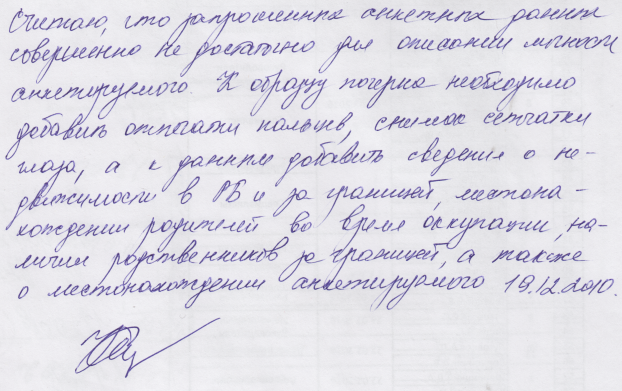 Считаю, что запрошенных анкетных данных
совершенно не достаточно для описания личности
анкетируемого. К образцу почерка необходимо
добавить отпечатки пальцев, снимок сетчатки
глаза, а к данным добавить сведения о не-
движимости в РБ и за границей, местона-
хождении родителей во время оккупации, на-
личии родственников за границей, а также
о местонахождении анкетируемого 19.12.2010.